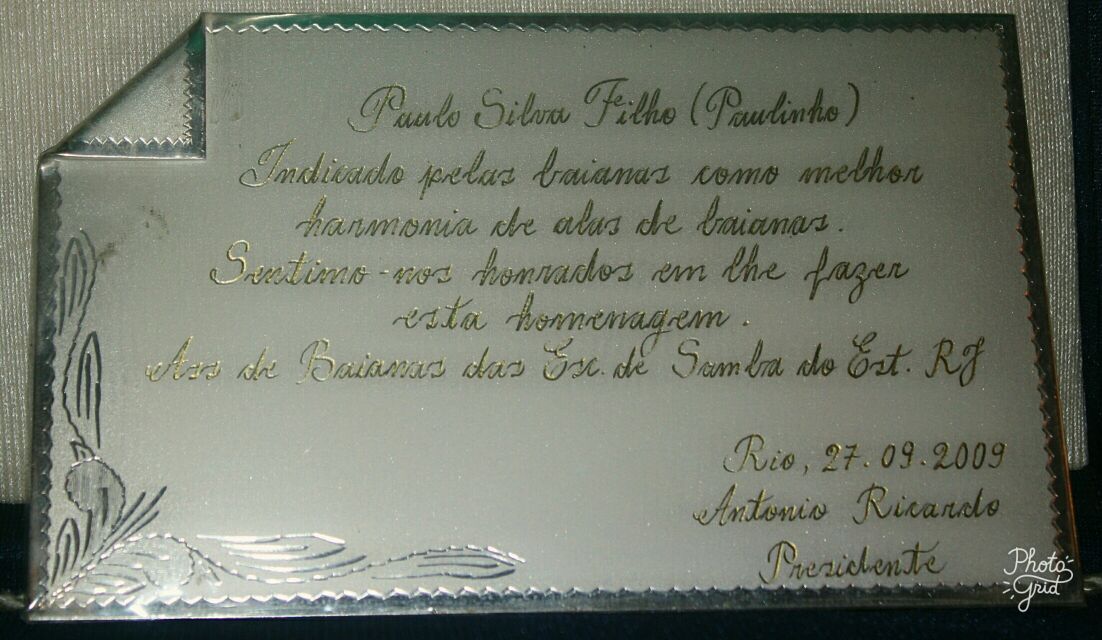 Paulo Silva Filho (Paulinho)
Indicado pelas baianas como melhor
harmonia de alas de baianas.
Sentimo-nos honrados em lhe fazer
esta homenagem.
Ass de Baianas das Esc. de Samba do Est. RJ
Rio, 27.09.2009
Antonio Ricardo
Presidente
Photo
Grid